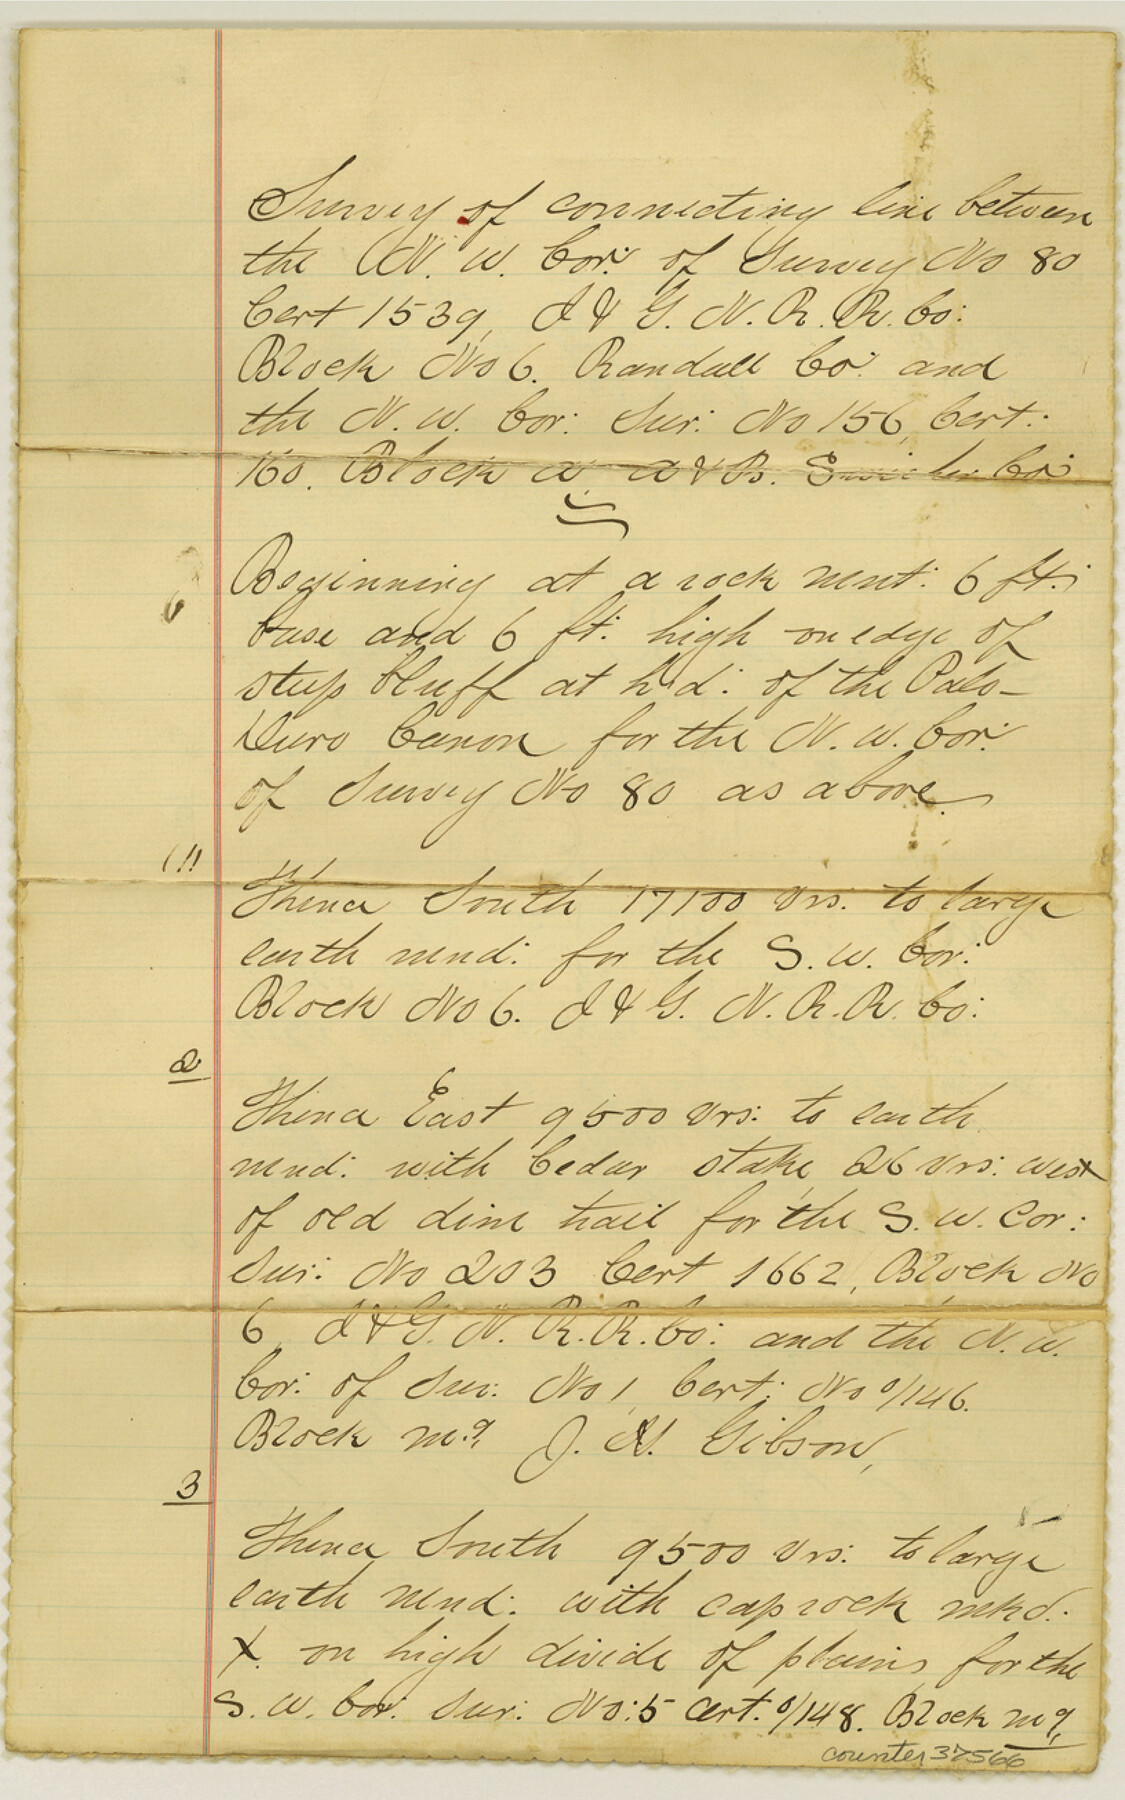 Survey of connecting line between
the N. W. Cor: of Survey No 80
Cert 1539, I & G. N. R. R. Co:
Block No 6. Randall Co: and
the N. W. Cor: Sur: No 156, Cert:
160. Block A A & B. Swisher Co:
Beginning at a rock mnt: 6 ft:
base and 6 ft: high on edge of
steep bluff at h'd: of the Palo-
Duro Canon for the N. W. Cor:
of Survey No 80 as above.
(1)
Thence South 17100 vrs. to large
earth mnd: for the S. W. Cor:
Block No 6. I & G. N. R. R. Co:
2
Thence East 9500 vrs: to earth
mnd: with Cedar stake 26 vrs: west
of old dim trail for the S. W. Cor:
Sur: No 203 Cert 1662, Block No
6, I & G. N. R. R. Co: and the N. W.
Cor: of Sur: No 1, Cert: No 0/146.
Block M.9, J. H. Gibson,
3
Thence South 9500 vrs: to large
earth mnd: with cap rock mkd:
X. on high divide of plains for the
S. W. Cor: Sur: No: 5 Cert. 0/148. Block M9,
counter 37566